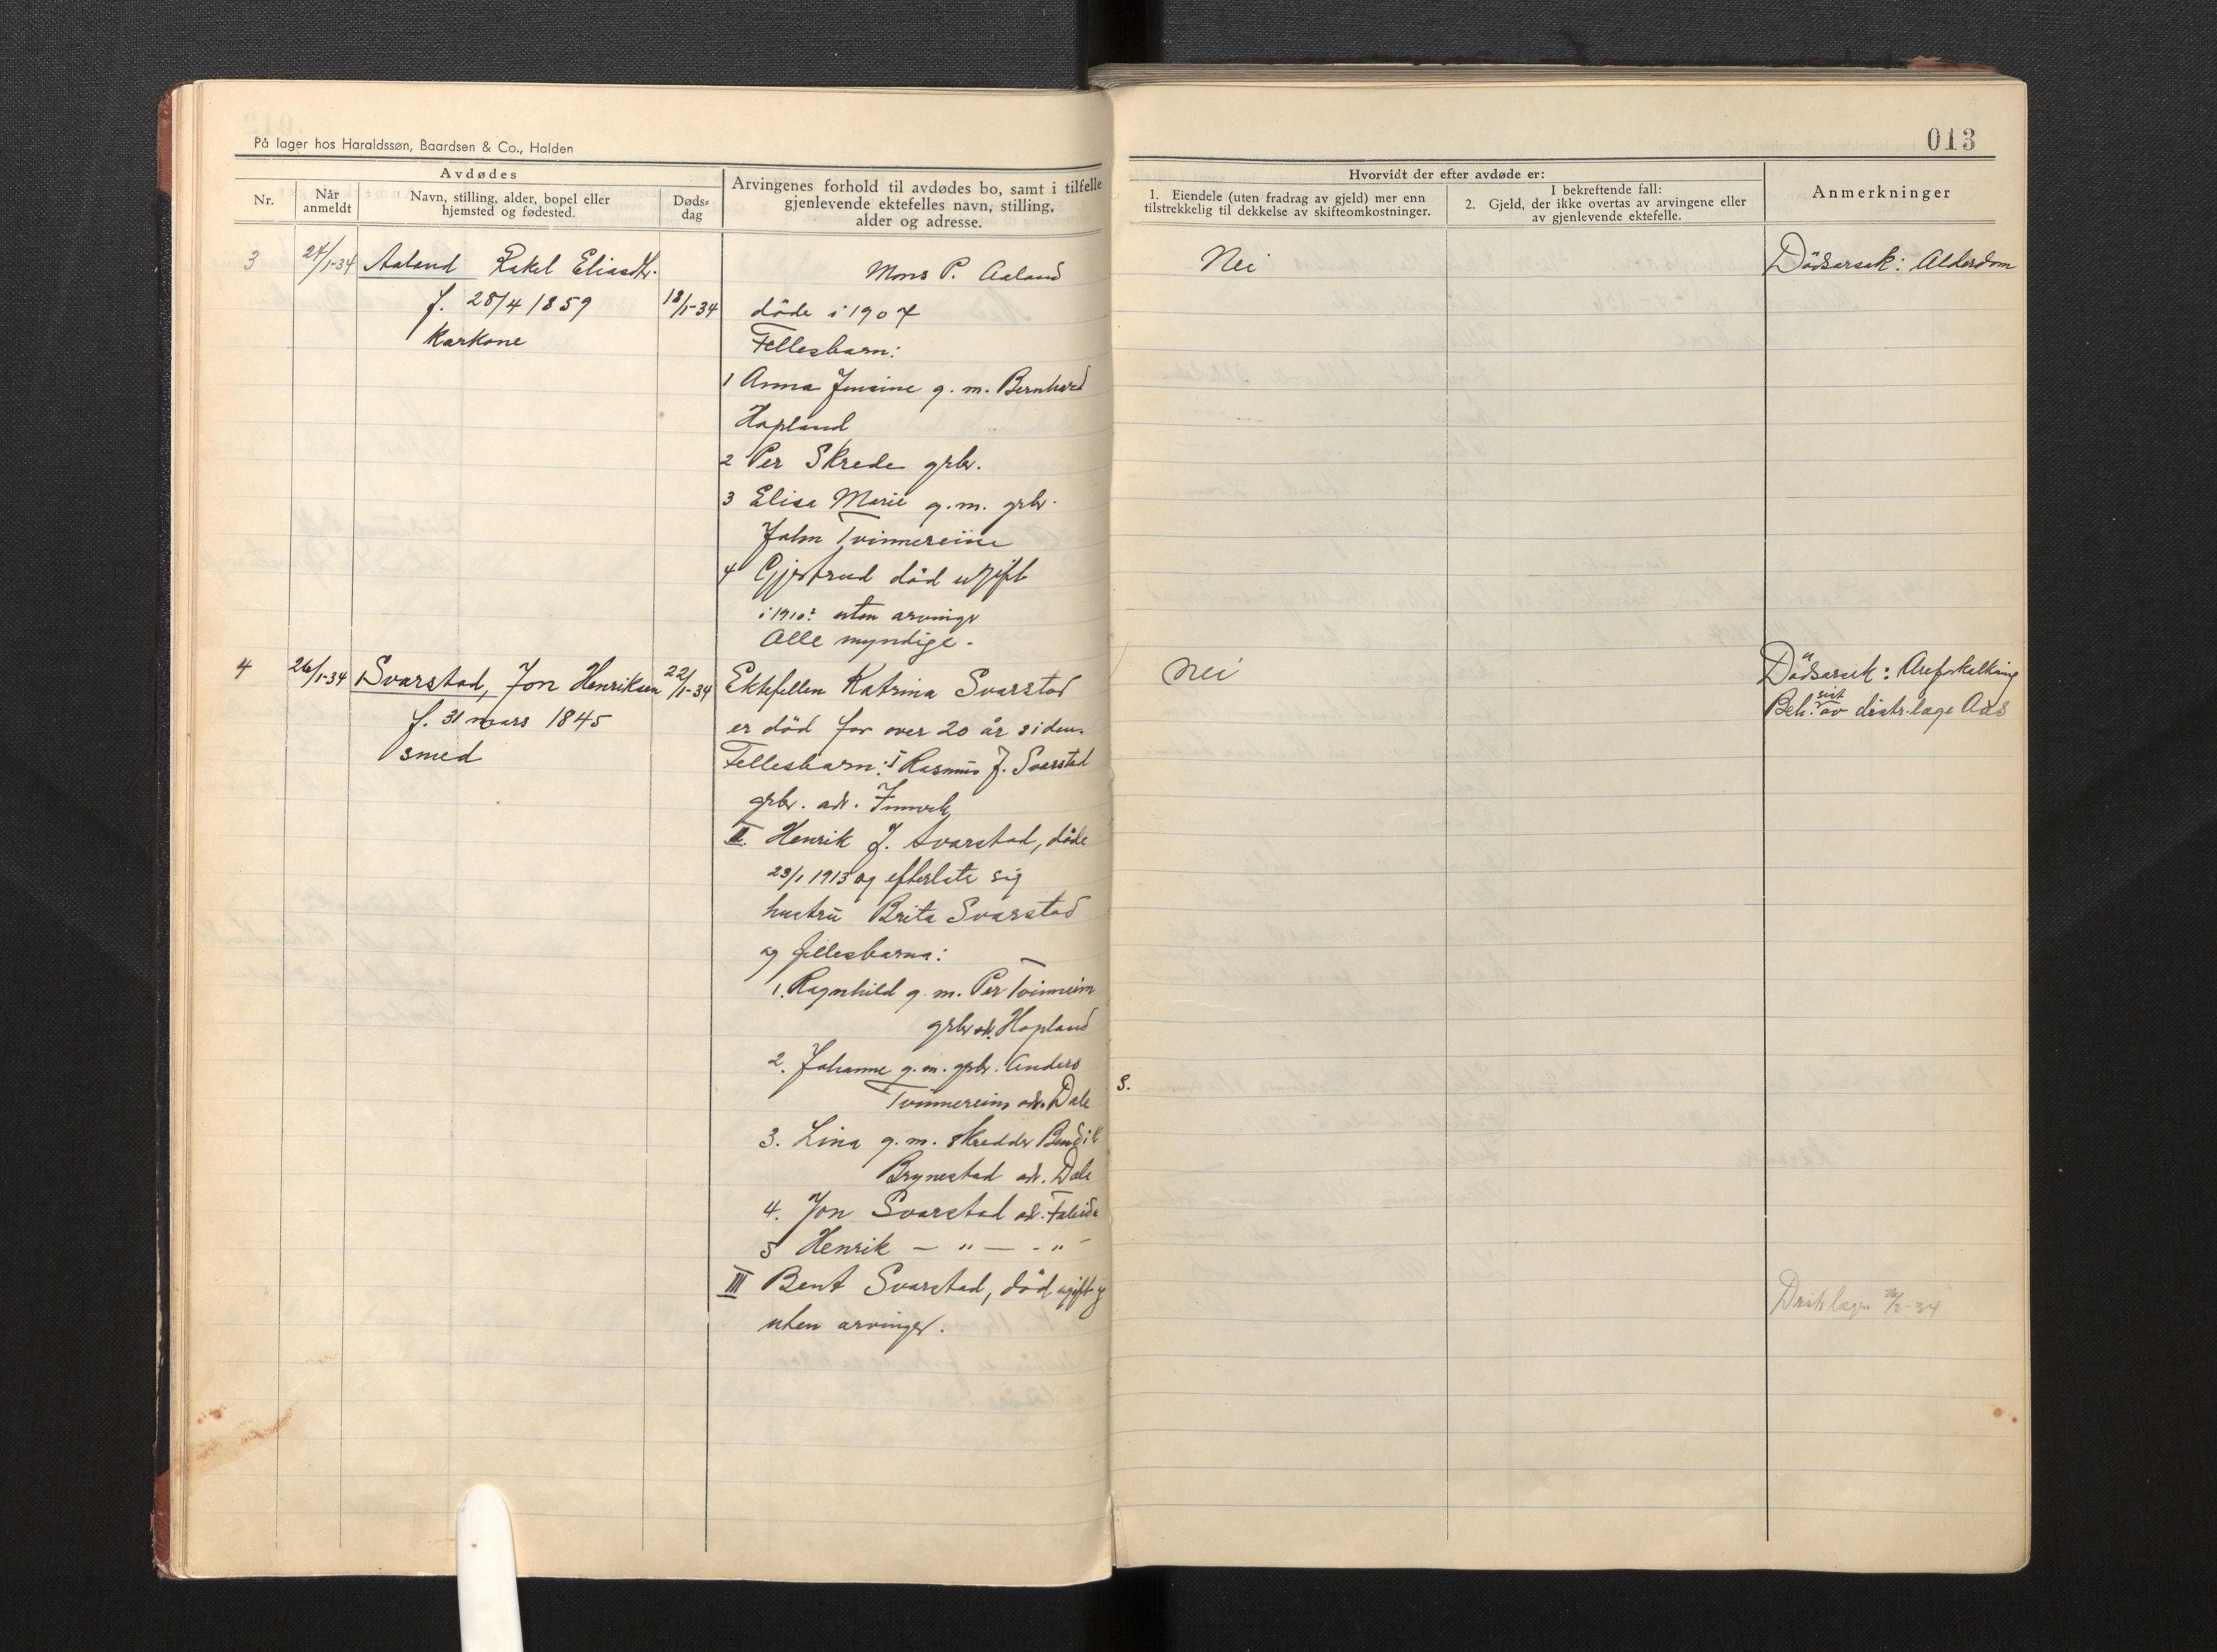 På lager hos Haraldssøn, Baardsen & Co., Halden
013
Avdødes
Nr.
Når
anmeldt
Navn, stilling, alder, bopel eller
hjemsted og fødested.
Døds-
dag
Arvingenes forhold til avdødes bo, samt i tilfelle
gjenlevende ektefelles navn, stilling,
alder og adresse.
Hvorvidt der efter avdøde er:
1. Eiendele (uten fradrag av gjeld) mer enn
tilstrekkelig til dekkelse av skifteomkostninger.
I bekreftende fall:
2. Gjeld, der ikke overtas av arvingene eller
av gjenlevende ektefelle.
Anmerkninger
3 24/1-34 Aaland Rakel Eliasdtr.
f. 28/4 1859 18/1-34
Karkone
Mons P. Aaland
döde i 1907
Fellesbarn:
1 Anna Jensine g. m. Bernhard
Hopland
2 Per Skrede grbr.
3 Elisa Marie g.m. grbr.
John Tvinnereim
4 Gjertrud död ugift
i 1910? uten arvinger
Alle myndige.
Nei
Dödsarsak: Alderdom
4 26/1-34 Svarstad, Jon Henriksen 22/1-34
f. 31 mars 1845
smed
Ektefellen Katrina Svarstad
er död for over 20 år siden.
Fellesbarn: I Rasmus J. Svarstad
grbr. adr.
II. Henrik J. Svarstad, döde
23/1 1913 og efterlate sig
hustru Brita Svarstad
og fellesbarna:
1. Ragnhild g. m. Per Tvinnereim
grbr. adr. Hopland
2. Johanne g. m. grbr. Anders
Tvinnereim adr. Dale
3. Lina g. m. skredder Bendik
Brynestad adr. Dale
4. Jon Svarstad adr. Faleide
5 Henrik — " — - " -
III Bent Svarstad, död ugift og
uten arvinger.
Nei
Dödsarsak: Areforkalkning
Beh. av distr. læge Aas
S.
Distr. lægen 26/2-34